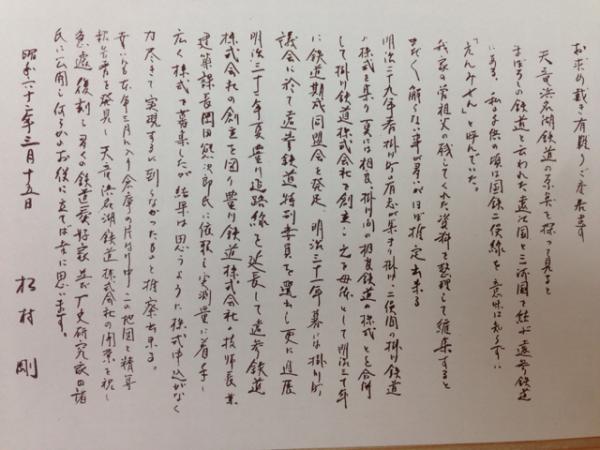 お求め戴き有難うございます
天竜浜名湖鉄道の系景を探って見ると
まぼろしの鉄道と云われた遠江国と三河国を結ぶ遠参鉄道
にある、私の子供の頃は国鉄二俣線を意味は知らずに
「えんみせん」と呼んでいた。
我家の曾祖父の残してくれた資料を整理して編集すると
全く解らない事が多いがほぼ推定出来る
明治二十九年春掛川町の有志が集まり掛川、二俣間の掛川鉄道
の株式を集め更には相良、掛川間の相良鉄道の株式とを合併
して掛川鉄道株式会社を創立、之を母体として明治三十年
に鉄道期成同盟会を発足、明治三十一年暮には掛川町
議会に於て遠参鉄道特別委員を選出し更に進展
明治三十二年夏豊川進路線を延長して遠参鉄道
株式会社の創立を図り豊川鉄道株式会社の技師長兼
建築課長岡田熊次郎氏に依頼し実測量に着手し
広く株式を募集したが結果は思うように株式申込がなく
力尽きて実現するに到らなかったものと推察出来る。
幸いにも本年三月に入り倉庫の片付け中この地図と精算
報告書を発見し天竜浜名湖鉄道株式会社の開業を祝し
急遽復刻し君の鉄道愛好家並びに史研究家の諸
氏に公開し何らかのお役に立てば幸に思います。
昭和六十二年三月十五日
松村 剛